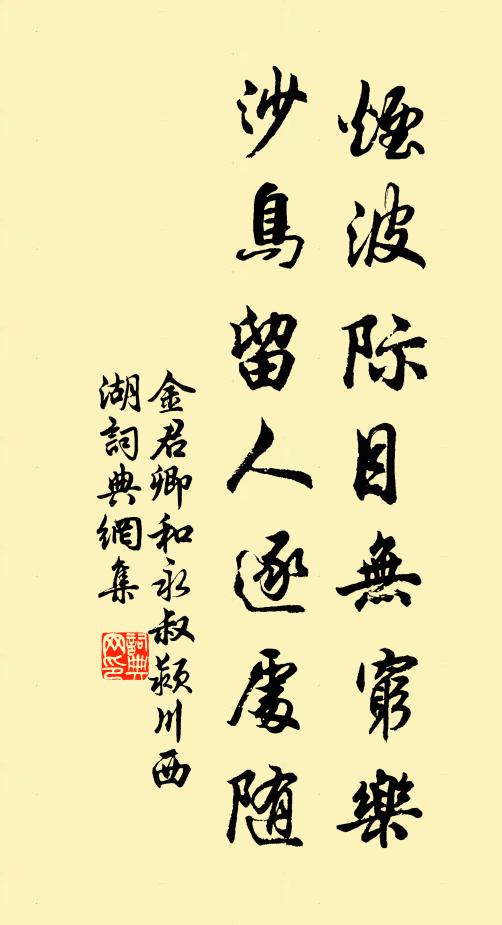 煙波际目無窮樂
沙鳥留人逐處随
金君卿和永叔颍川西
湖詞典網集
詞典网印